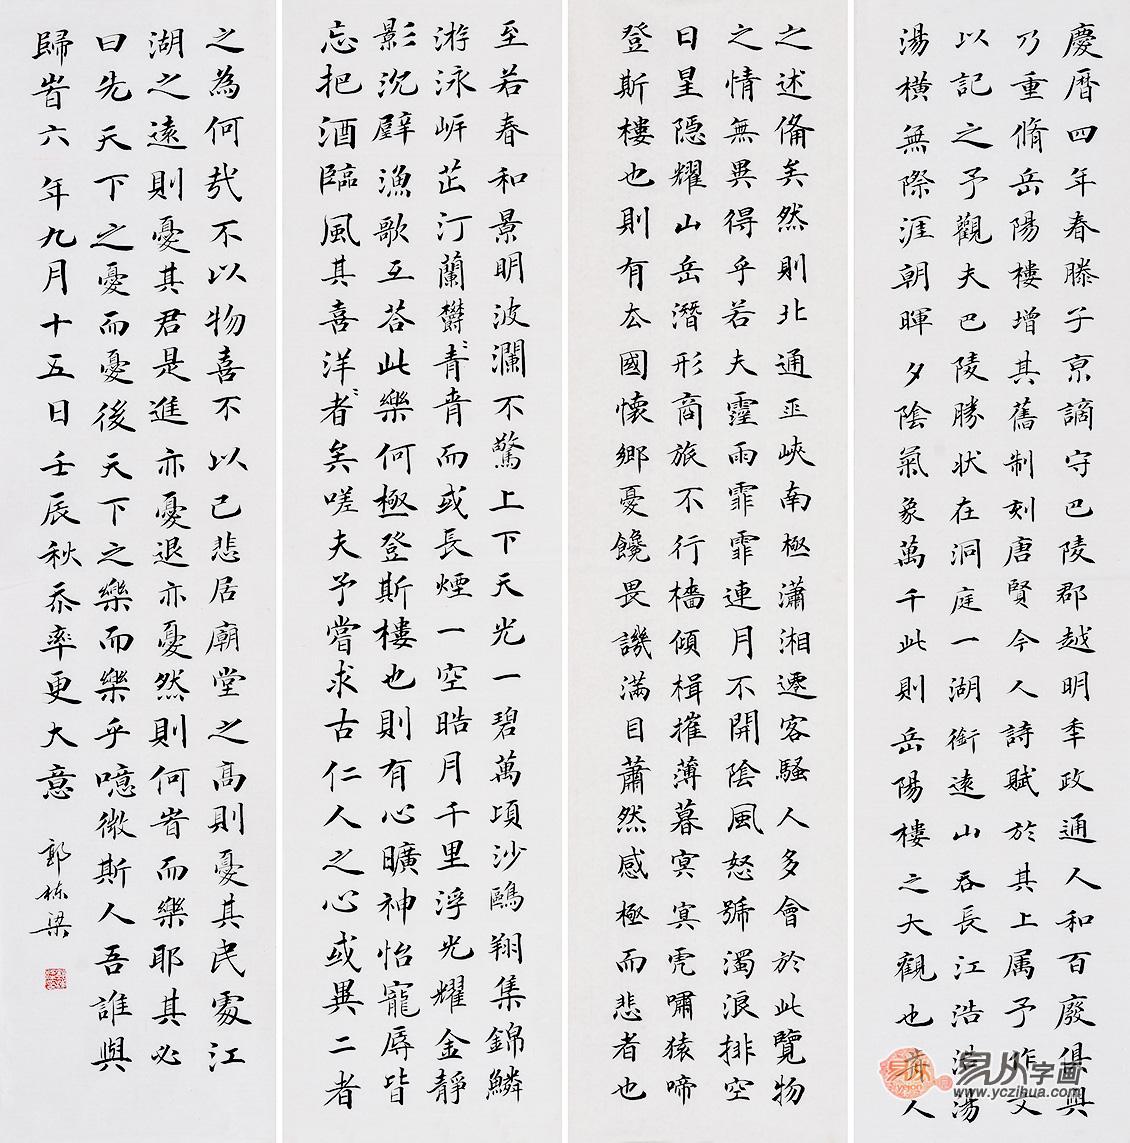 慶曆四年春滕子亰謫守巴陵郡越明秊政通人和百廢俱興
乃重脩岳陽樓增其舊制刻唐賢今人詩賦於其上属予作文
以記之予觀夫巴陵勝状在洞庭一湖銜遠山吞長江浩浩湯
湯橫無際涯朝暉夕陰氣象萬千此則岳陽樓之大觀也前人
之述俻矣然則北通巫峽南極瀟湘遷客騷人多會於此覽物
之情無異得乎若夫霪雨霏霏連月不開陰風怒號濁浪排空
日星隱耀山岳潛形商旅不行檣傾楫摧薄暮冥冥虎嘯猿啼
登斯樓也則有去國懷鄉憂饞畏譏滿目蕭然感極而悲者也
至若春和景明波瀾不驚上下天光一碧萬頃沙鷗翔集錦鱗
游泳岸芷汀蘭欝〻青青而或長煙一空皓月千里浮光耀金靜
影沉壁漁歌互答此樂何極登斯樓也則有心曠神怡寵辱皆
忘把酒臨風其喜洋〻者矣嗟夫予嘗求古仁人之心或異二者
之為何哉不以物喜不以己悲居廟堂之高則憂其民處江
湖之遠則憂其君是進亦憂退亦憂然則何旹而樂耶其必
曰先天下之憂而憂後天下之樂而樂乎噫微斯人吾誰與
歸旹六年九月十五日壬辰秋忝率更大意 郭栋梁
易从字画
www.yczihua.com